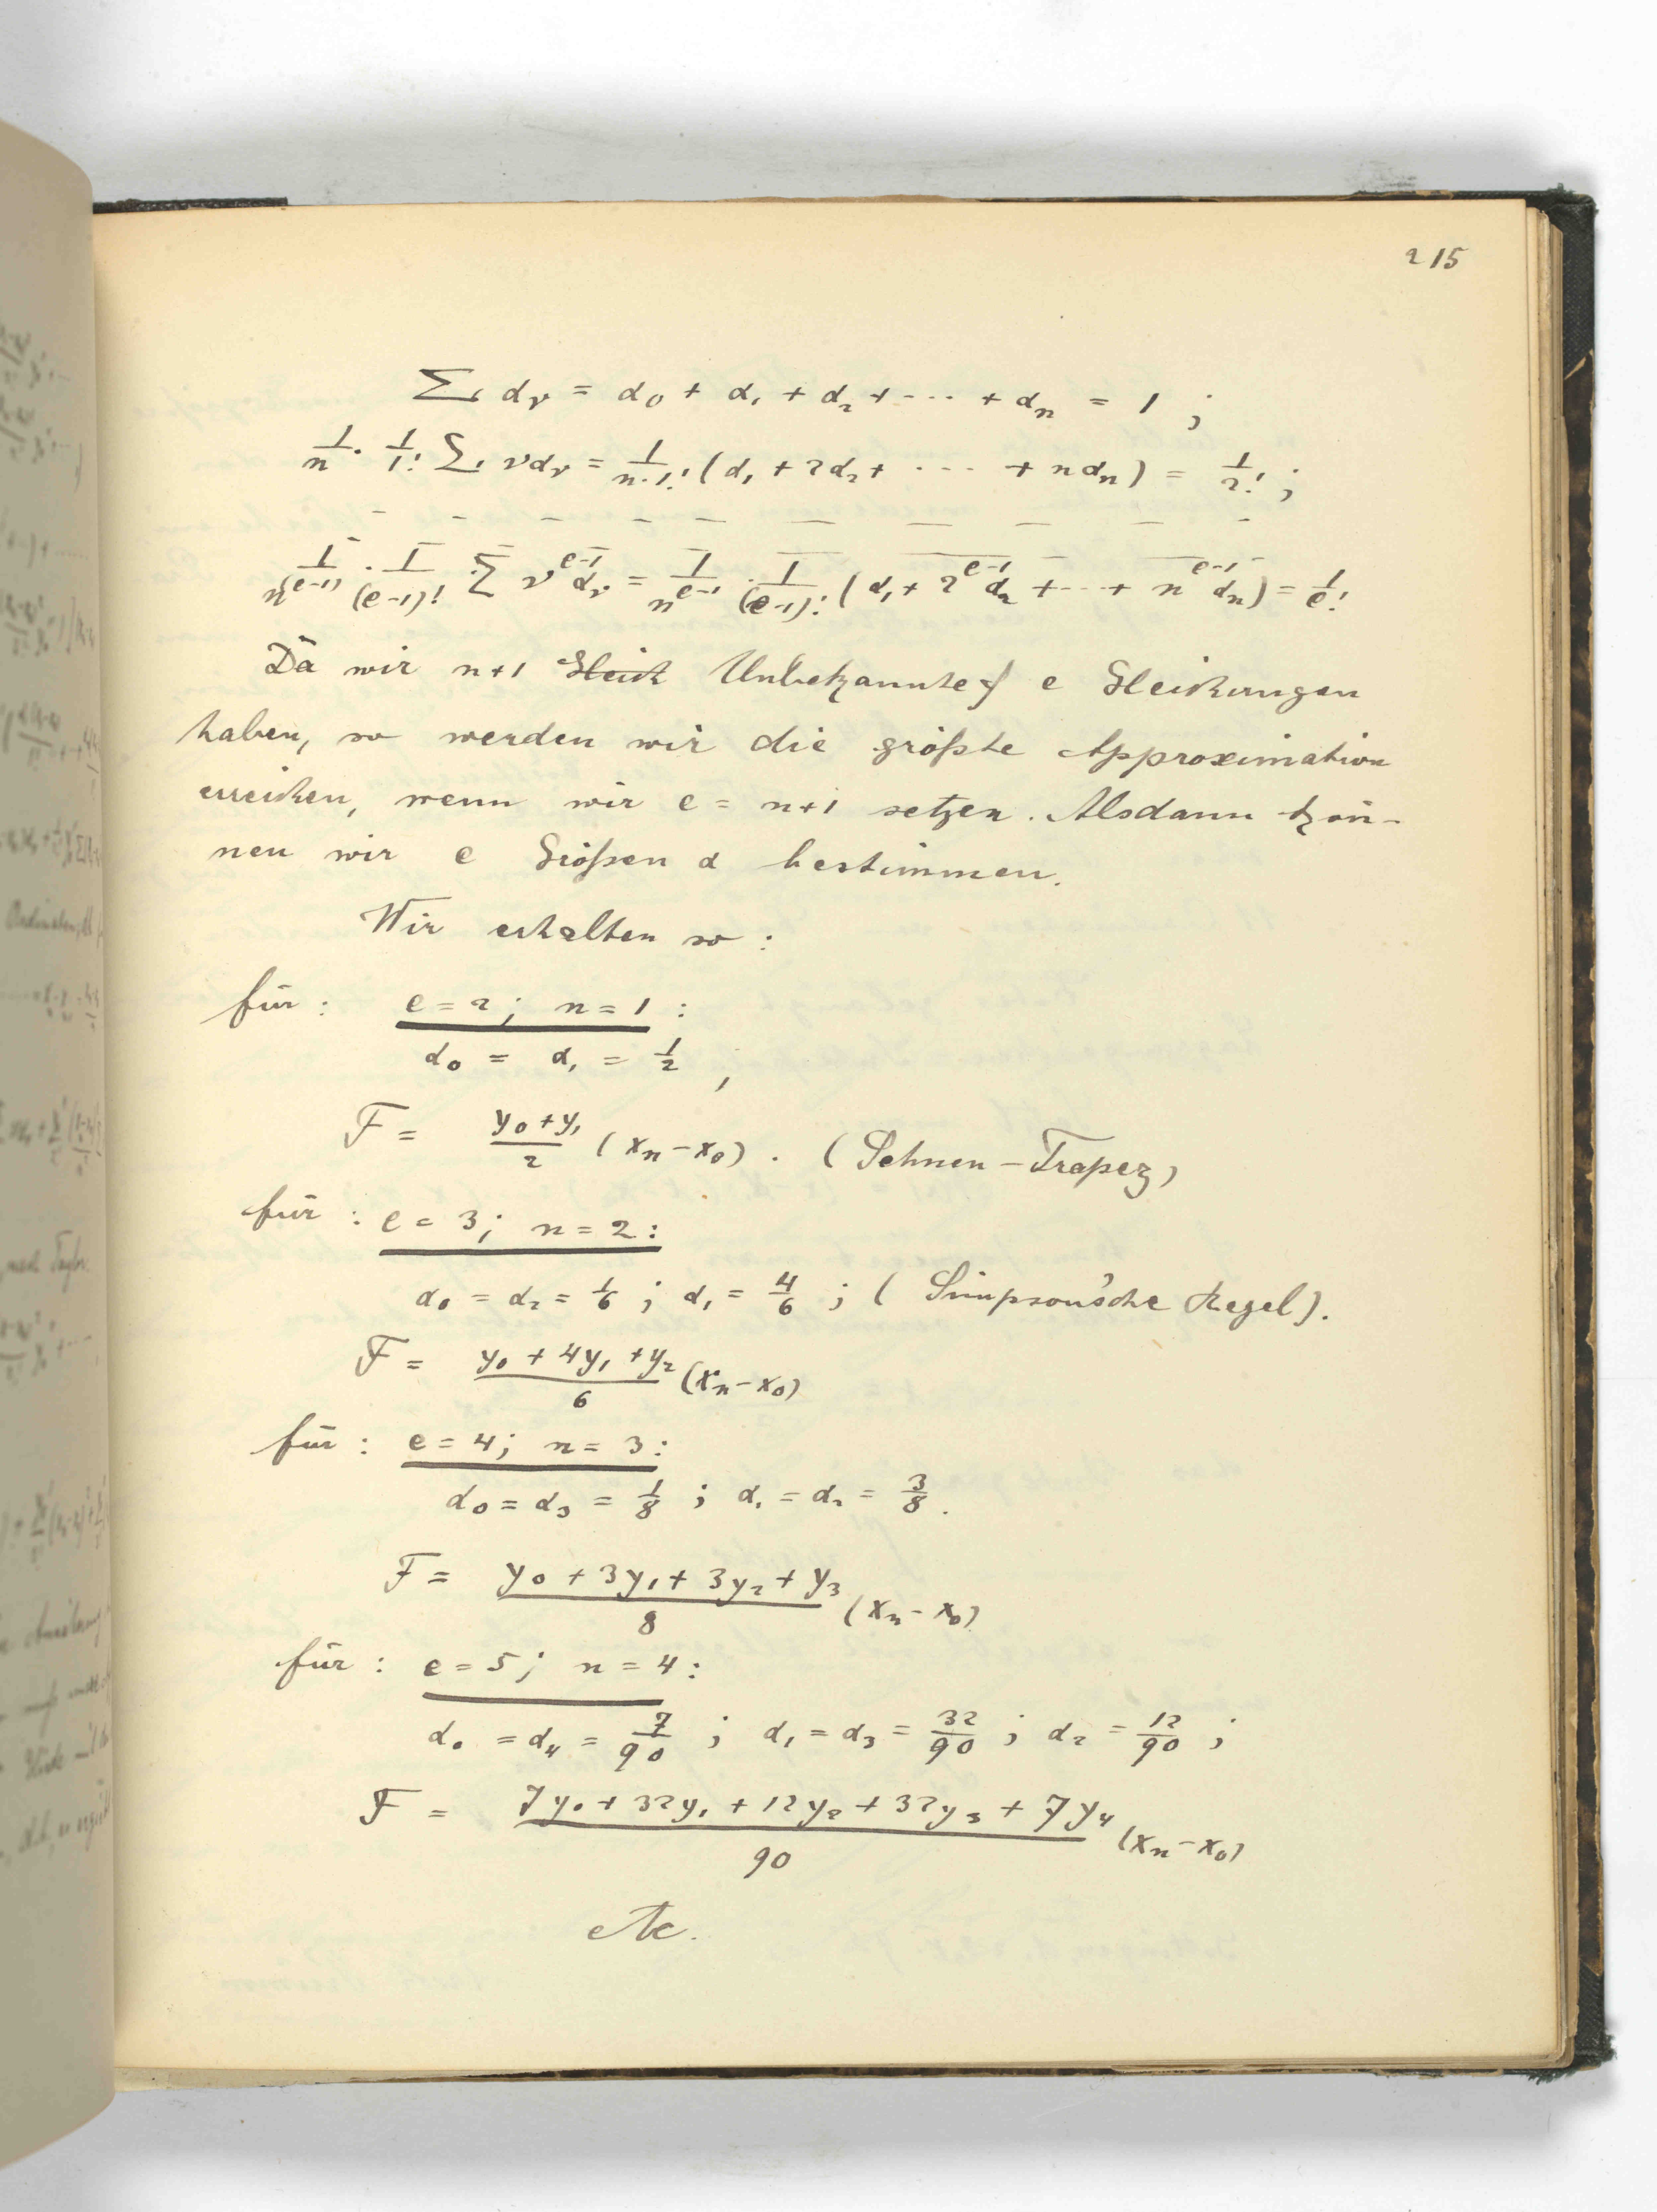 215
∑ α_ν = α_0 + α_1 + α_2 + ··· + α_n = 1 ;
1/n · 1/1! ∑ να_ν = 1/(n·1!) (α_1 + 2α_2 + ··· + nα_n) = 1/2! ;
1/n^(e-1) · 1/(e-1)! ∑ ν^(e-1) α_ν = 1/n^(e-1) · 1/(e-1)! (α_1 + 2^(e-1) α_2 + ··· + n^(e-1) α_n) = 1/e!
Da wir n+1 Gleich Unbekannte & e Gleichungen
haben, so werden wir die größte Approximation
erreichen, wenn wir e = n+1 setzen. Alsdann kön-
nen wir e Größen α bestimmen.
Wir erhalten so :
für : e = 2 ; n = 1 :
α_0 = α_1 = 1/2 ,
F = (y_0 + y_1)/2 (x_n - x_0) . (Sehnen - Trapez)
für : e = 3 ; n = 2 :
α_0 = α_2 = 1/6 ; α_1 = 4/6 ; (Simpson'sche Regel).
F = (y_0 + 4y_1 + y_2)/6 (x_n - x_0)
für : e = 4 ; n = 3 :
α_0 = α_3 = 1/8 ; α_1 = α_2 = 3/8 .
F = (y_0 + 3y_1 + 3y_2 + y_3)/8 (x_n - x_0)
für : e = 5 ; n = 4 :
α_0 = α_4 = 7/90 ; α_1 = α_3 = 32/90 ; α_2 = 12/90 ;
F = (7y_0 + 32y_1 + 12y_2 + 32y_3 + 7y_4)/90 (x_n - x_0)
etc.